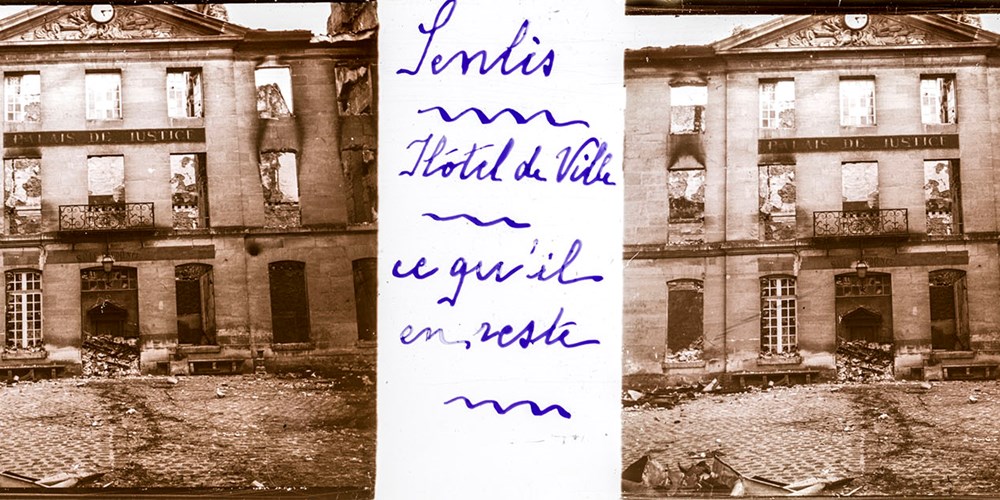 PALAIS DE JUSTICE
Senlis
Hôtel de Ville
ce qu'il
en reste
PALAIS DE JUSTICE